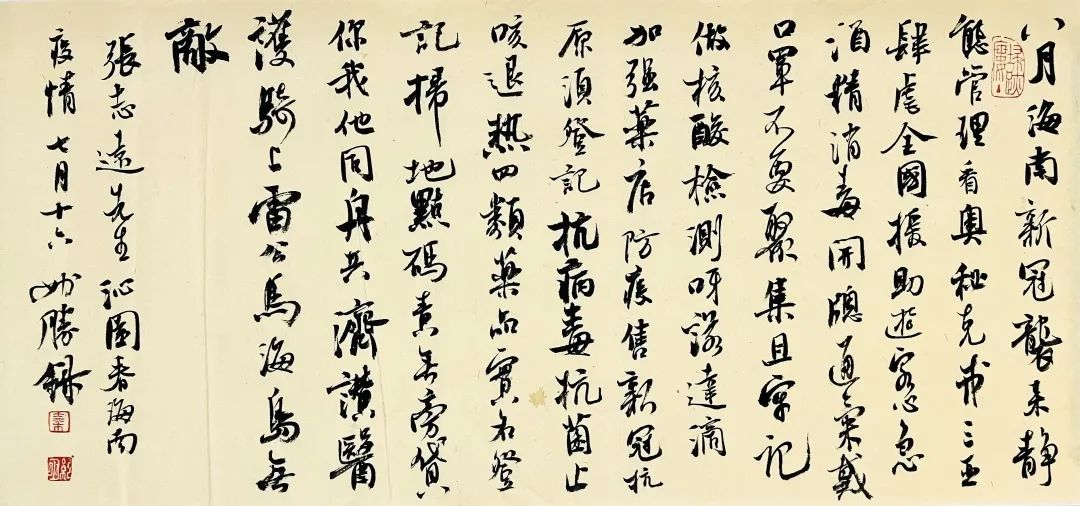 八月海南新冠襲来静
態管理看奥秘克戎三亚
肆虐全國援助遊客急
酒精消毒開牕通氣戴
口罩不要聚集且牢记
做核酸檢測呀諾達滴
加强藥店防疫售新冠抗
原須登記抗病毒抗菌止
咳退熱四類藥品實名登
記掃地點碼責無旁貸
你我他同舟共濟讃醫
護騎上雷公馬海島無
敵
張志遠先生沁園春海南
疫情七月十六勝錄